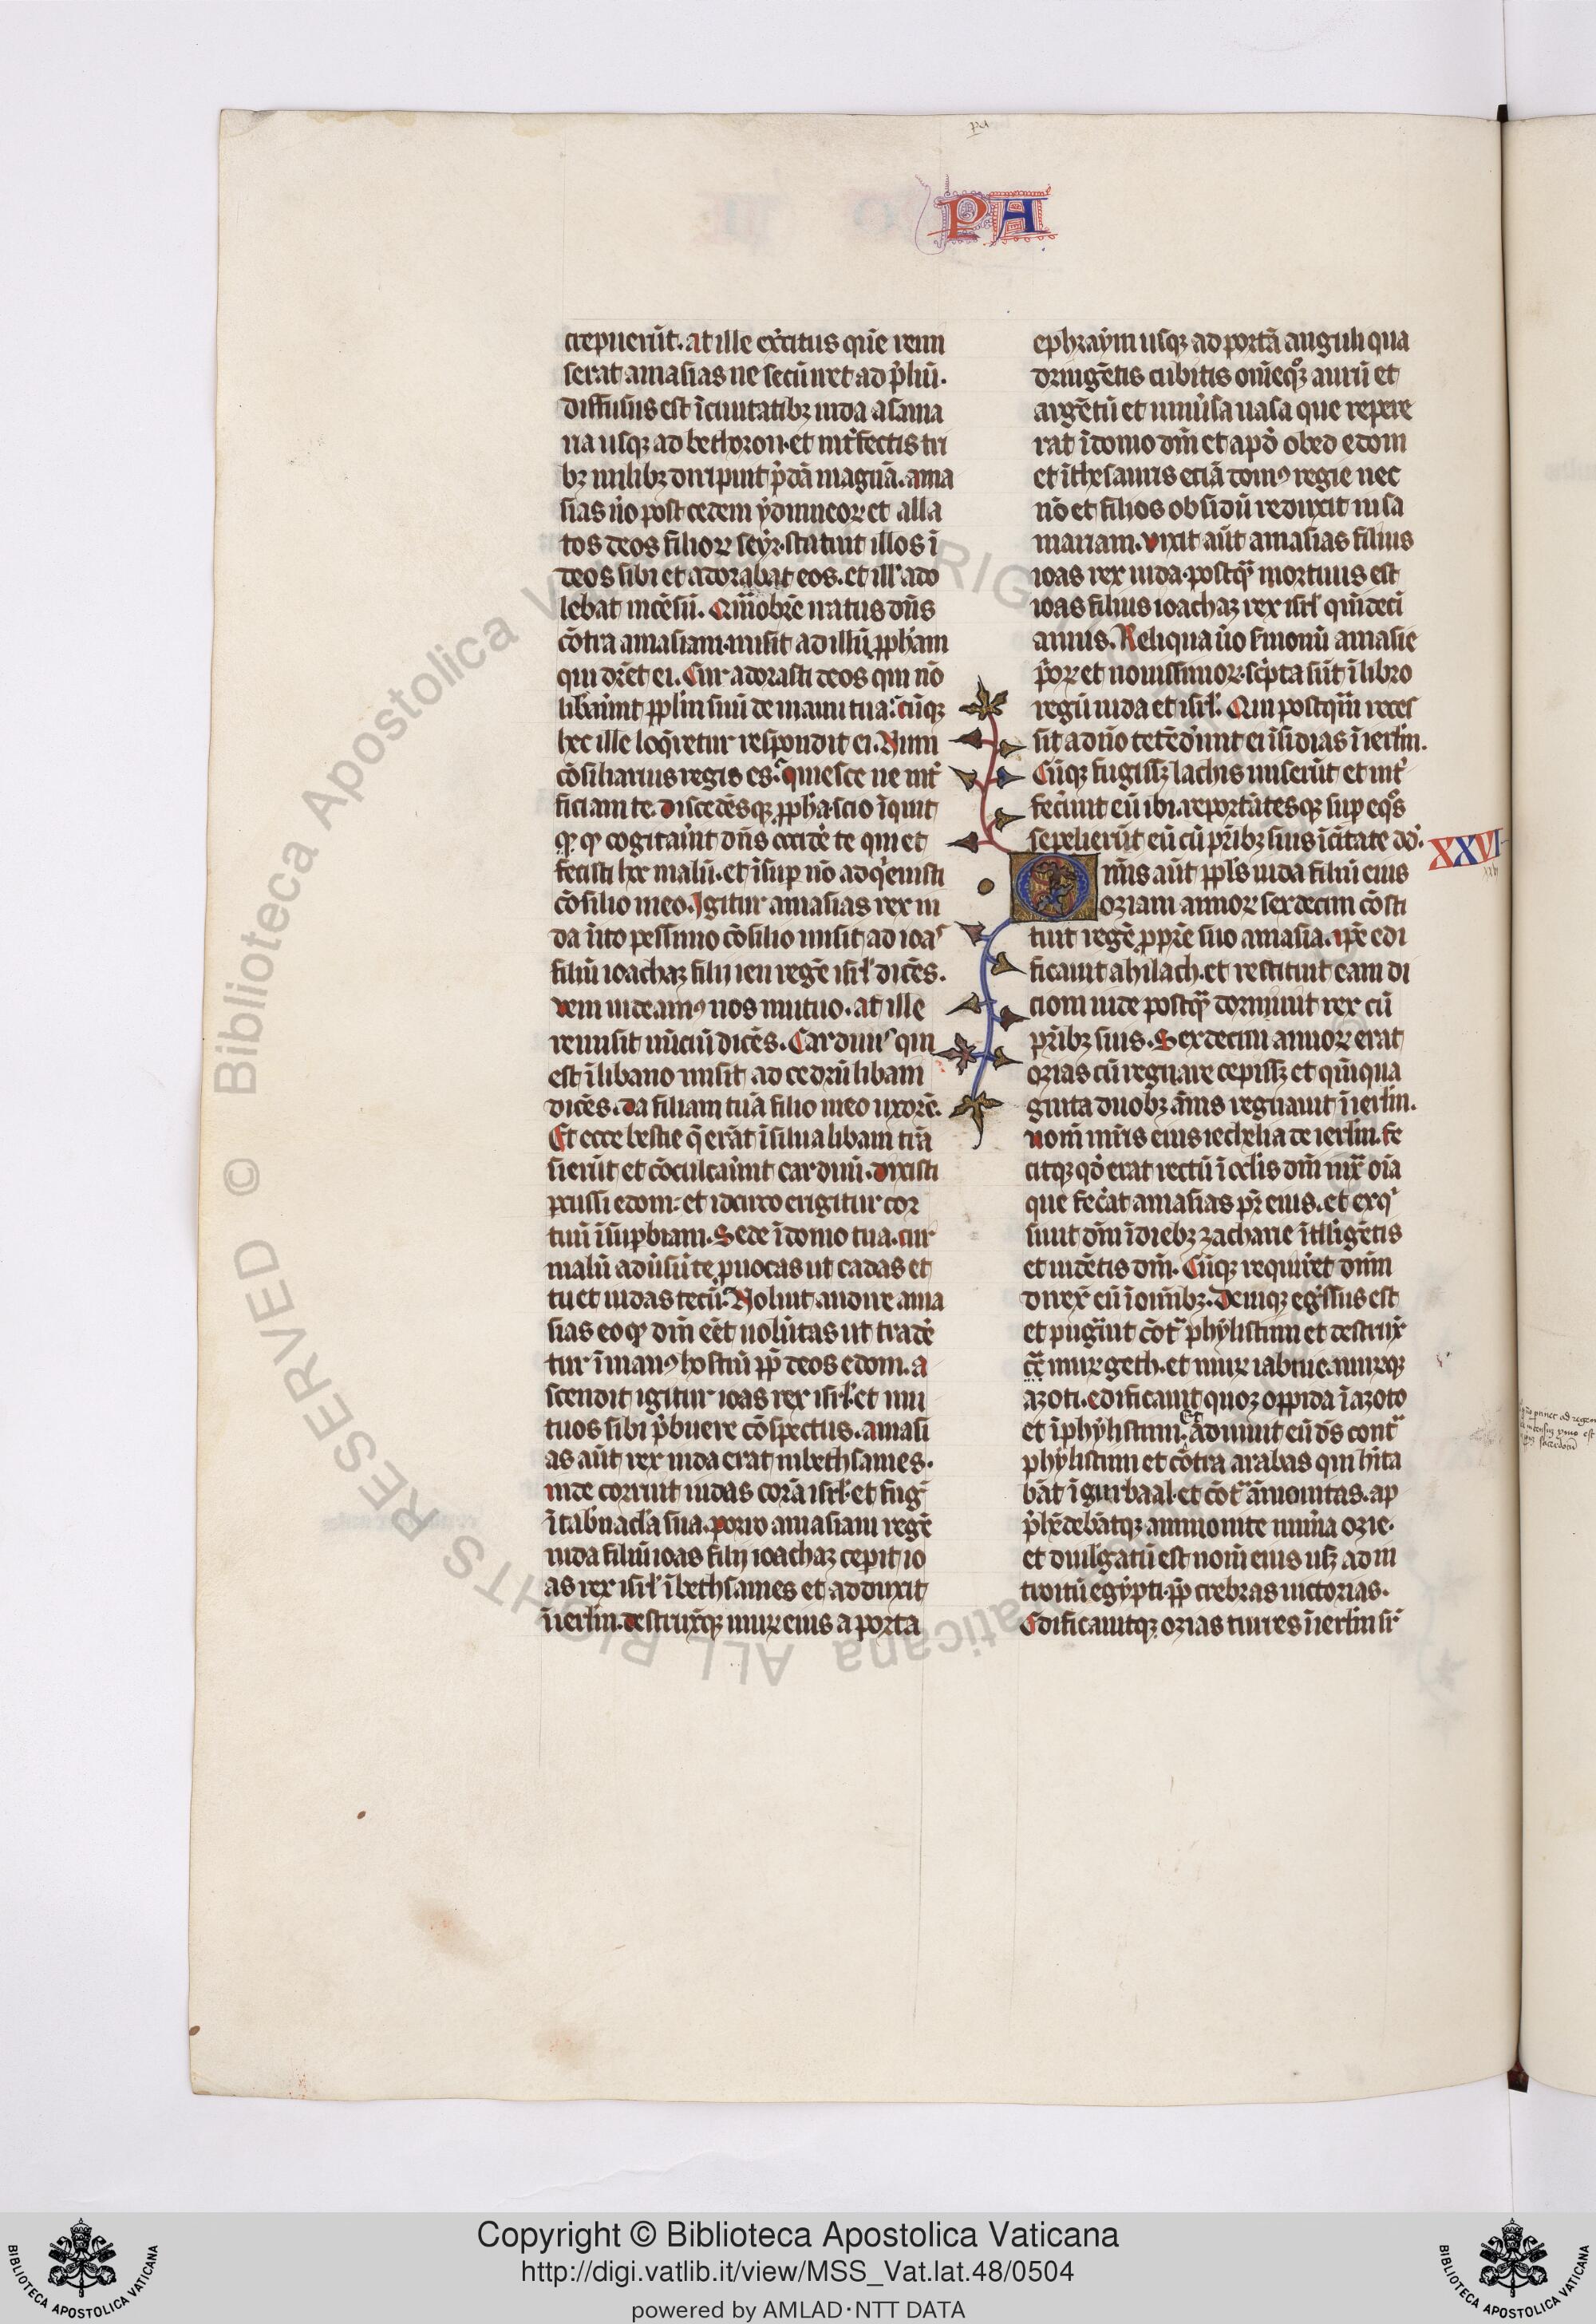 pa
PA
crepuerūt. at ille exc̄itus quē remi
serat amasias ne secū iret ad p̄liū.
diffusus est ī ciuitatibꝫ iuda a sama
ria usqꝫ ad bethoron. et int̄fectis tri
bꝫ milibꝫ diripuit p̄dā magnā. ama
sias ūo post cedem ydumeoꝝ et alla
tos deos filioꝝ seyr. statuit illos ī
deos sibi et adorabat eos. et ill' ado
lebat incēsū. Quāobrē iratus dn̄s
cōtra amasiam. misit ad illū ꝓpħam
qui dr̄et ei. Cur adorasti deos qui nō
libaūint ppl'm suū de manu tua. cūqꝫ
hec ille loq̄retur respondit ei. Num
cōsiliarius regis es. quiesce ne int̄
ficiam te. discedēsqꝫ ꝓpħa. scio īquit
ꝙ cogitaūit dn̄s occidē te qui et
fecisti hoc malū. et īsup nō adq̇euisti
cōsilio meo. Igitur amasias rex iu
da īito pessimo cōsilio misit ad ioas
filiū ioachaz filij ieu regē isrl' dicēs.
veni uideamꝰ nos mutuo. at ille
remisit nūciū dicēs. Carduus qui
est ī libano misit ad cedrū libani
dicēs. da filiam tuā filio meo uxorē.
Et ecce bestie q̄ erāt ī silua libani trā
sierūt et cōculcaūint carduū. dixisti
ꝑcussi edom. et idcirco erigitur cor
tuū ī suꝑbiam. Sede ī domo tua. cur
malū aduīsū te ꝓuocas ut cadas et
tu et iudas tecū. Noluit audire ama
sias eo ꝙ dn̄i eēt uolūtas ut tradē
tur ī manꝰ hostiū ꝓp̄ deos edom. a
scendit igitur ioas rex isrl'. et mu
tuos sibi p̄buere cōspectus. amasi
as aūt rex iuda erat in bethsames.
inde corruit iudas corā isrl'. et fuḡ
ī tab̄nacl'a sua. porro amasiam regē
iuda filiū ioas filij ioachaz cepit io
as rex isrl' ī bethsames et adduxit
ī ierl'm. destruxꝫqꝫ muꝝ eius a porta
ephraym usqꝫ ad portā anguli qua
dringētis cubitis om̄eqꝫ aurū et
argētū et uniūsa uasa que repere
rat ī domo dn̄i et apd̄ obed edom
et ī thesauris eciā domꝰ regie nec
nō et filios obsidū reduxit in sa
mariam. vixit aūt amasias filius
ioas rex iuda. postꝗ̄ mortuus est
ioas filius ioachaz rex isrl' quīdecī
annis. Reliqua ūo s̄monū amasie
p̄oꝝ et nouissimoꝝ. sc̄pta sūt ī libro
regū iuda et isrl'. Qui postquā reces
sit a dn̄o tetēdūnt ei īsidias ī ierl'm.
Cūqꝫ fugissꝫ lachis miserūt et int̄
fec̄unt eū ibi. reportātesqꝫ sup eqͦs
sepelierūt eū cū pr̄ibꝫ suis ī c̄itate dd̄.
XXVI
xxvi
Omn̄is aūt ppl's iuda filiū eius
oziam annoꝝ sexdecim cōsti
tuit regē ꝓ pr̄e suo amasia. ip̄e edi
ficauit ahilach. et restituit eam di
ciom iude postꝗ̄ dormiuit rex cū
pr̄ibꝫ suis. Sexdecim annoꝝ erat
ozias cū regnare cepissꝫ et quīqua
ginta duobꝫ ānis regnauit ī ierl'm.
nom̄ mr̄is eius iechelia de ierl'm. fe
citqꝫ qd̄ erat rectū ī ocl'is dn̄i iuxᵃ oīa
que fec̄at amasias pr̄ eius. et exqͥ
siuit dn̄m ī diebꝫ zacharie ītelligētis
et uidētis dn̄m. Cūqꝫ requir̄et dn̄m
direx̄ eū ī om̄ibꝫ. Deniqꝫ egr̄ssus est
et pugn̄uit cōtᵃ phylistiim et destrux̄
muꝝ geth. et muꝝ iabnie. muꝝqꝫ
azoti. edificauit quoqꝫ oppida ī azoto
et ī phylistiim. Et adiuuit eū ds̄ contᵃ
phylistiim et cōtra arabas qui hīta
bāt ī gurbaal. et cōtᵃ āmonitas. ap
p̄hēdebātqꝫ ammonite mun̄a ozie.
et diuulgatū est nom̄ eius usqꝫ ad in
troitū egypti. ꝓp̄ crebras uictorias.
Edificauitqꝫ ozias turres ī ierl'm sr̄
Copyright © Biblioteca Apostolica Vaticana
http://digi.vatlib.it/view/MSS_Vat.lat.48/0504
powered by AMLAD·NTT DATA
BIBLIOTECA APOSTOLICA VATICANA
BIBLIOTECA APOSTOLICA VATICANA
© Biblioteca Apostolica Vaticana ALL RIGHTS RESERVED